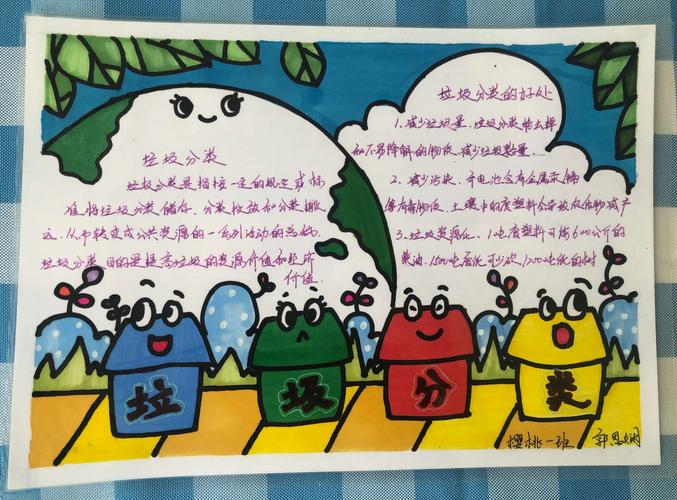 垃圾分类
垃圾分类是指按一定的规定或标
准将垃圾分类储存、分类投放和分类搬
运,从而转变成公共资源的一系列活动的总称。
垃圾分类目的是提高垃圾的资源价值和经济
价值.
垃圾分类的好处
1.减少垃圾量、垃圾分类能去掉
和不易降解的物质,减少垃圾数量.
2.减少污染、电池含有金属汞、镉
等有毒物质、土壤中的废塑料会导致农作物减产
3.垃圾资源化、1吨废塑料可炼600公斤的
柴油、1500吨废纸可少砍1200吨纸的树
垃 圾 分 类
樱桃一班 郭恩